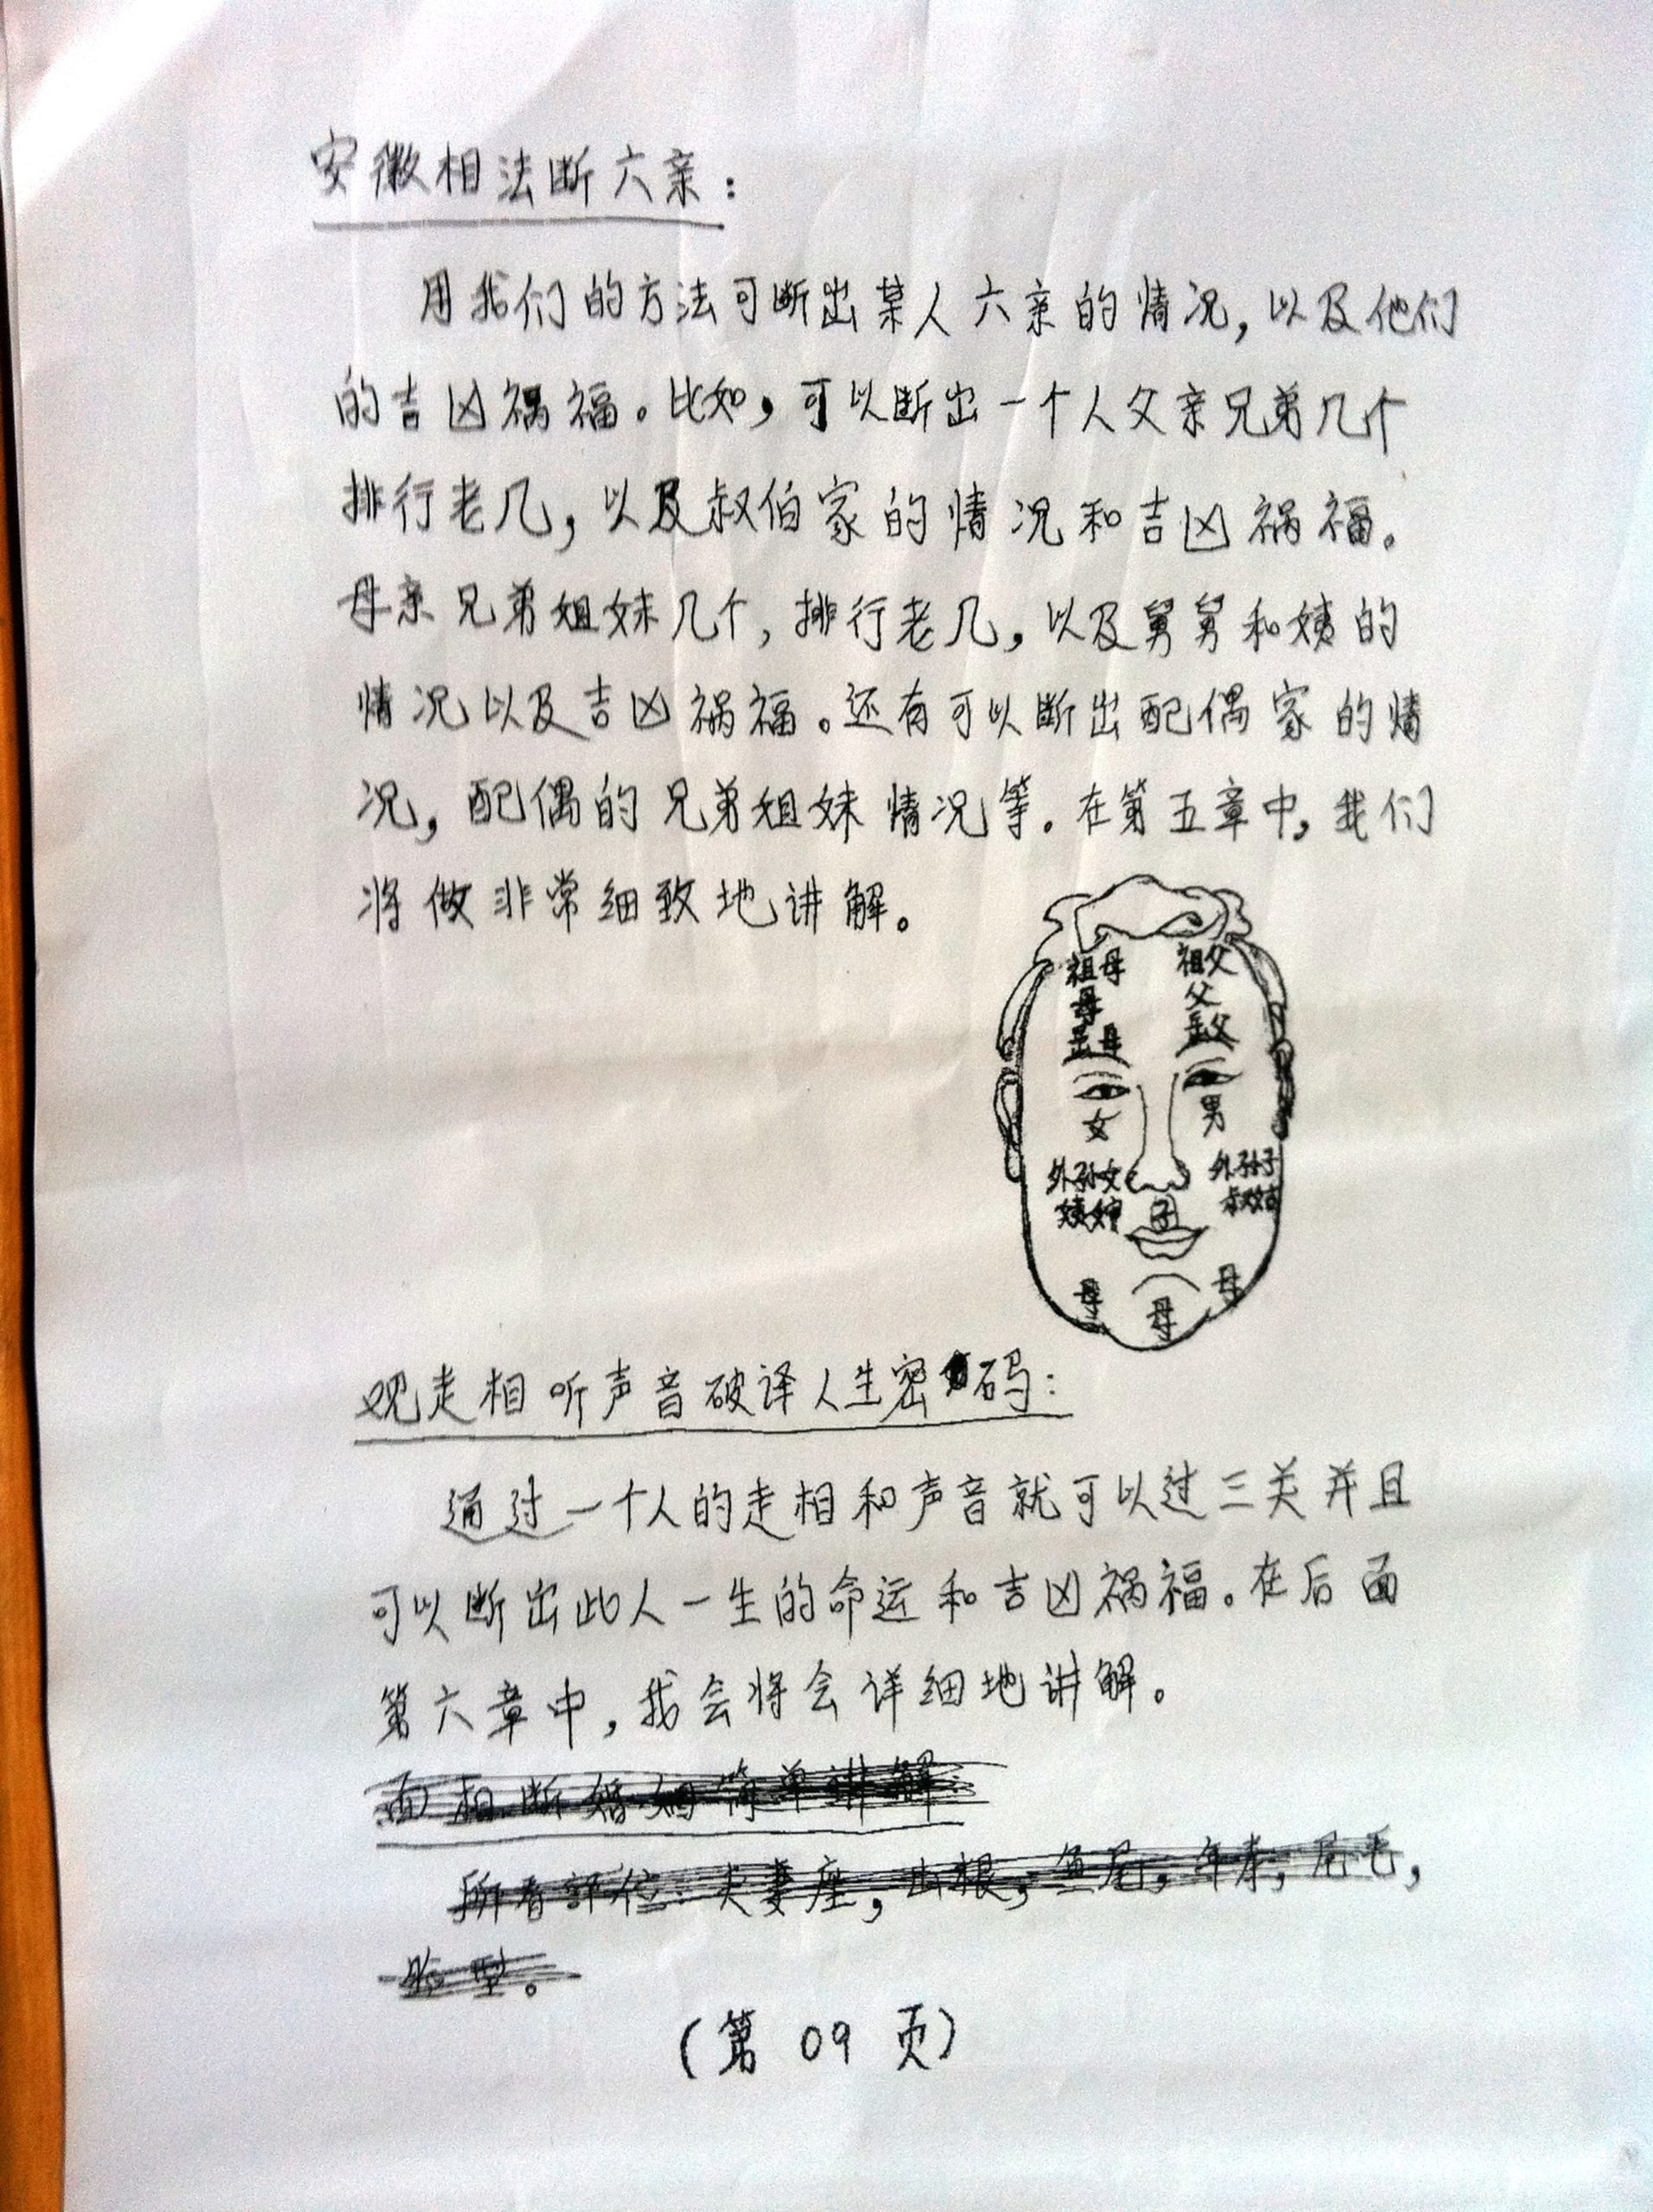 安徽相法断六亲：
用我们的方法可断出某人六亲的情况，以及他们
的吉凶祸福。比如，可以断出一个人父亲兄弟几个
排行老几，以及叔伯家的情况和吉凶祸福。
母亲兄弟姐妹几个，排行老几，以及舅舅和姨的
情况以及吉凶祸福。还有可以断出配偶家的情
况，配偶的兄弟姐妹情况等。在第五章中，我们
将做非常细致地讲解。
祖母 祖父
母 父
岳母 岳父
女 男
外孙女 外孙子
姨婶 子 叔姑
母 母 母
观走相听声音破译人生密码：
通过一个人的走相和声音就可以过三关并且
可以断出此人一生的命运和吉凶祸福。在后面
第六章中，我会将会详细地讲解。
面相断婚姻简单讲解：
所看部位：夫妻座，山根，鱼尾，年寿，眉毛，
脸型。
（第 09 页）